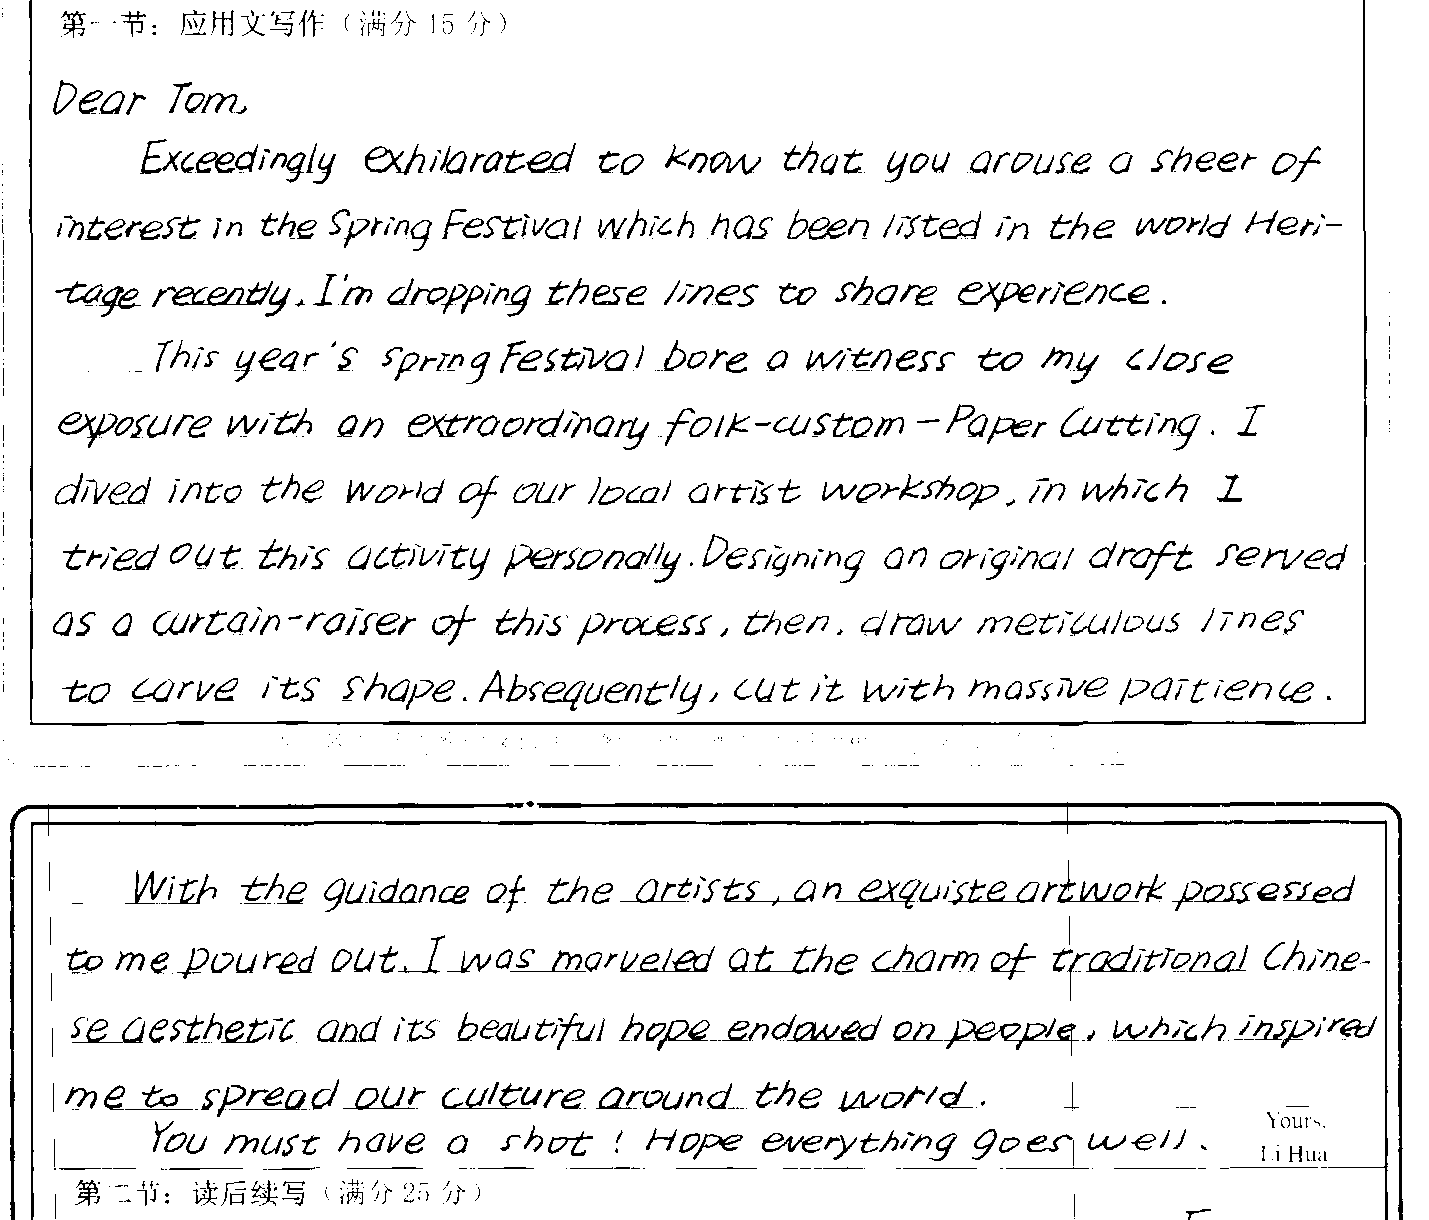 第一节：应用文写作（满分 15 分）
Dear Tom,
Exceedingly exhilarated to know that you arouse a sheer of
interest in the Spring Festival which has been listed in the world Heri-
-tage recently, I'm dropping these lines to share experience.
This year's Spring Festival bore a witness to my close
exposure with an extraordinary folk-custom—Paper Cutting. I
dived into the world of our local artist workshop, in which I
tried out this activity personally. Designing an original draft served
as a curtain-raiser of this process, then, draw meticulous lines
to carve its shape. Absequently, cut it with massive paitience.
With the guidance of the artists, an exquiste artwork possessed
to me poured out. I was marveled at the charm of traditional Chine-
se aesthetic and its beautiful hope endowed on people, which inspired
me to spread our culture around the world.
You must have a shot! Hope everything goes well.
Yours,
Li Hua
第二节：读后续写（满分 25 分）